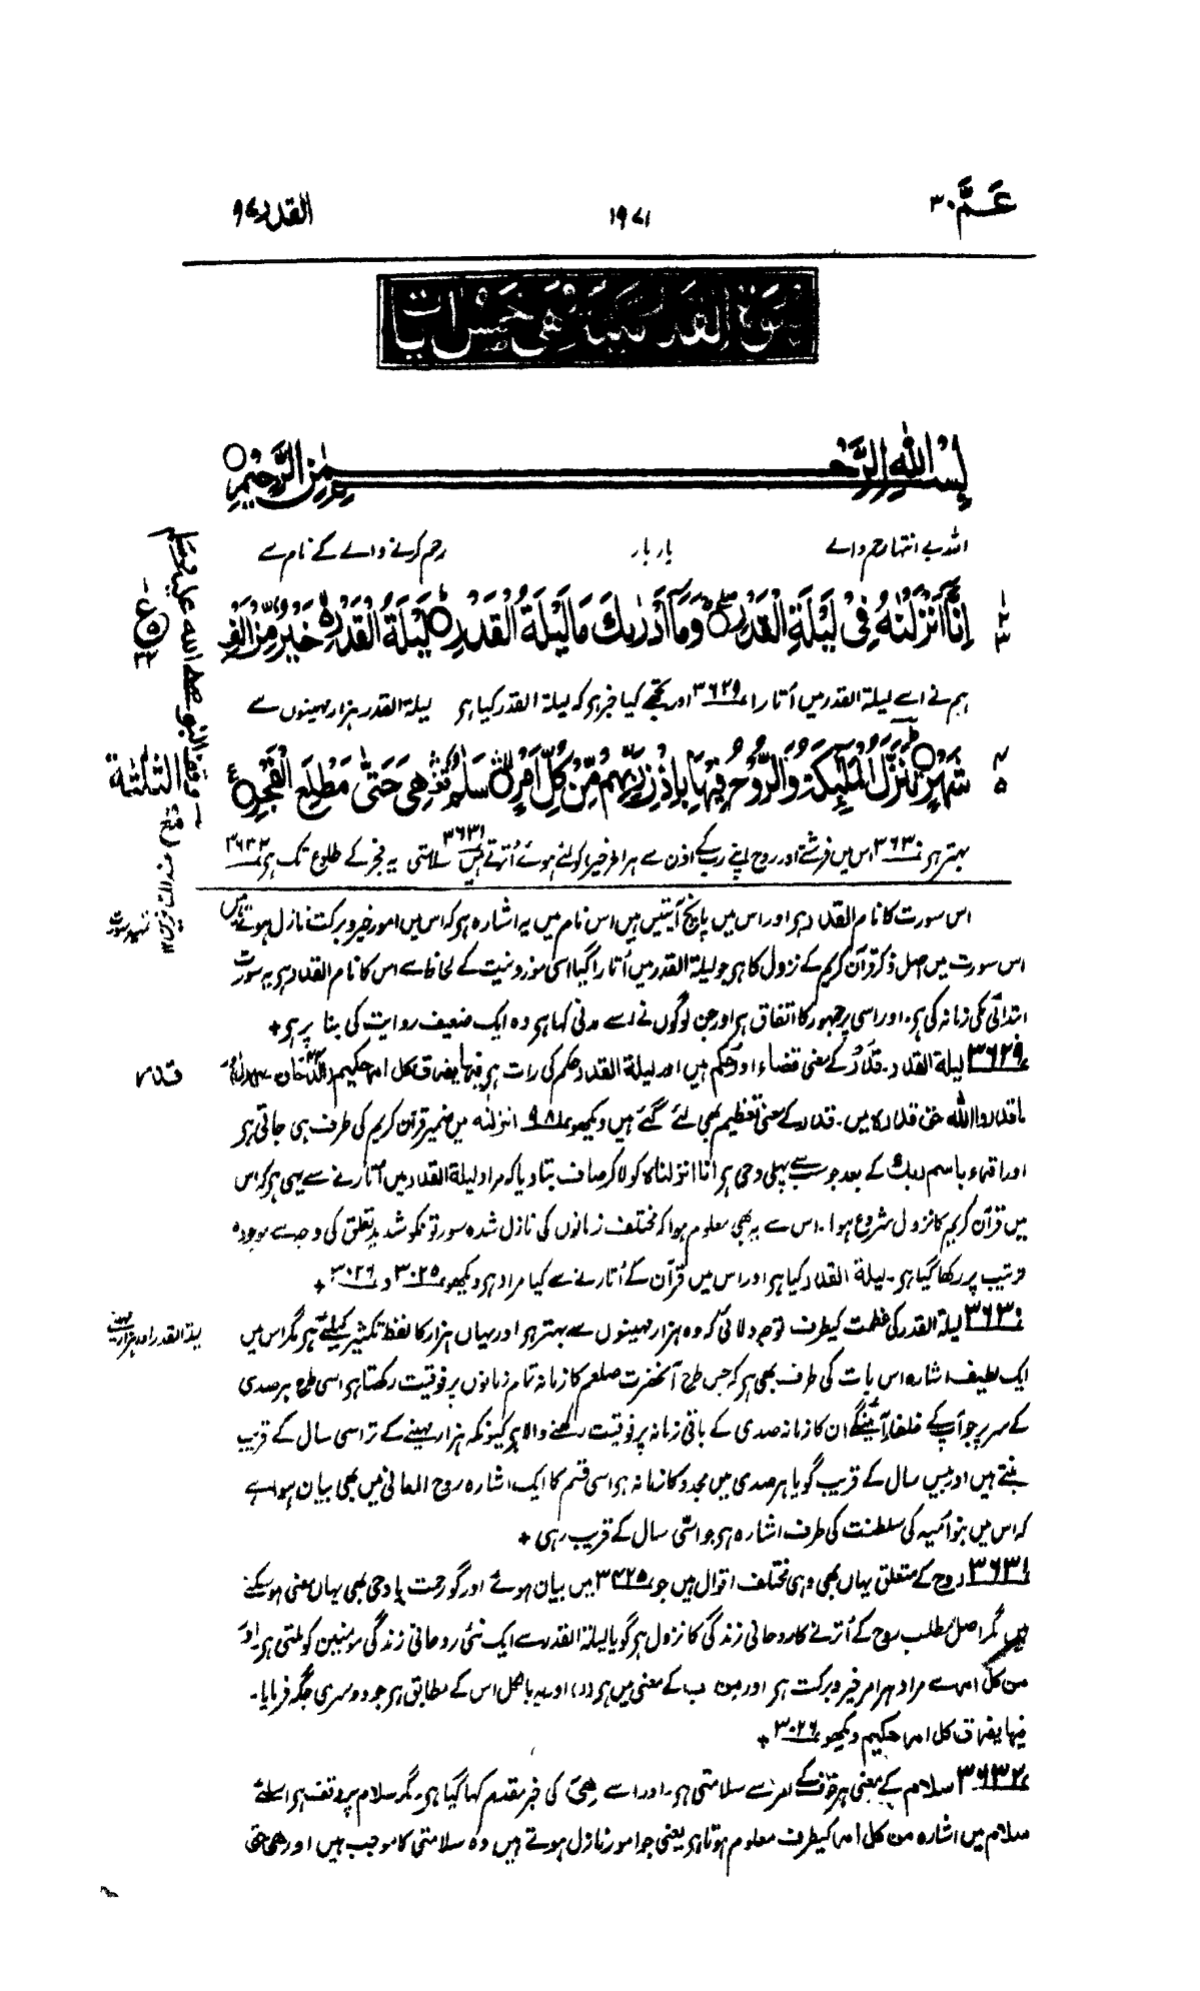 عَمَّ ٣٠
١٩٧١
القدر ٩٧
سورۃ القدر مکیۃ وھی خمس اٰیات
بِسْمِ اللّٰہِ الرَّحْمٰنِ الرَّحِیْمِ ○
اللہ بے انتہا رحم والے بار بار رحم کرنے والے کے نام سے
اِنَّاۤ اَنْزَلْنٰہُ فِیْ لَیْلَۃِ الْقَدْرِ ○ وَمَاۤ اَدْرٰىکَ مَا لَیْلَۃُ الْقَدْرِ ○ لَیْلَۃُ الْقَدْرِ خَیْرٌ مِّنْ اَلْفِ
ہم نے اسے لیلۃ القدر میں اُتارا ۳۶۲۹ اور تجھے کیا خبر ہو کہ لیلۃ القدر کیا ہو لیلۃ القدر ہزار مہینوں سے
شَہْرٍ ○ تَنَزَّلُ الْمَلٰٓئِکَۃُ وَالرُّوْحُ فِیْہَا بِاِذْنِ رَبِّہِمْ مِّنْ کُلِّ اَمْرٍ سَلٰمٌ ہِیَ حَتّٰی مَطْلَعِ الْفَجْرِ ○
بہتر ہو ۳۶۳۰ اس میں فرشتے اور روح اپنے رب کے اذن سے ہر امر خیر کو لئے ہوئے اُترتے ہیں ۳۶۳۱ سلامتی یہ فجر کے طلوع تک ہو ۳۶۳۲
وقف النبی صلی اللہ علیہ وسلم
الثلثۃ
اس سورت کا نام القدر ہو اور اس میں پانچ آیتیں ہیں اس نام میں یہ اشارہ ہو کہ اس میں امور خیر و برکت نازل ہوتے ہیں
اس سورت میں اصل ذکر قرآن کریم کے نزول کا ہو جو لیلۃ القدر میں اُتارا گیا اسی موزونیت کے لحاظ سے اس کا نام القدر ہو یہ سورت
ابتدائی مکی زمانہ کی ہو۔ اور اسی پر جمہور کا اتفاق ہو اور جن لوگوں نے اسے مدنی کہا ہو وہ ایک ضعیف روایت کی بنا پر ہو +
قدر
۳۶۲۹ لیلۃ القدر۔ قدر کے معنی قضاء اور حکم ہیں اور لیلۃ القدر حکم کی رات ہو فیہا یفرق کل امر حکیم (الدخان
ما قدروا اللہ حق قدرہ میں۔ قدر کے معنی تعظیم بھی لئے گئے ہیں دیکھو ۹۸۱ انزلنہ میں ضمیر قرآن کریم کی طرف ہی جاتی ہو
اور اقرء باسم ربک کے بعد جو سب سے پہلی وحی ہو انا انزلنا کو لا کر صاف بتا دیا کہ مراد لیلۃ القدر میں اتارنے سے یہی ہو کہ اس
میں قرآن کریم کا نزول شروع ہوا۔ اس سے یہ بھی معلوم ہوا کہ مختلف زمانوں کی نازل شدہ سورتوں کو شدید تعلق کی وجہ سے موجودہ
ترتیب پر رکھا گیا ہو۔ لیلۃ القدر کیا ہو اور اس میں قرآن کے اُتارنے سے کیا مراد ہو دیکھو ۳۰۲۵ و ۳۰۲۶ +
لیلۃ القدر اور ہزار مہینے
۳۶۳۰ لیلۃ القدر کی عظمت کیطرف توجہ دلائی کہ وہ ہزار مہینوں سے بہتر ہو اور یہاں ہزار کا لفظ تکثیر کیلئے ہو مگر اس میں
ایک لطیف اشارہ اس بات کی طرف بھی ہو کہ جس طرح آنحضرت صلعم کا زمانہ تمام زمانوں پر فوقیت رکھتا ہو اسی طرح ہر صدی
کے سر پر جو آپ کے خلفاء آئینگے ان کا زمانہ صدی کے باقی زمانہ پر فوقیت رکھنے والا ہو کیونکہ ہزار مہینے کے تراسی سال کے قریب
بنتے ہیں اور بیس سال کے قریب گویا ہر صدی میں مجدد کا زمانہ ہو اسی قسم کا ایک اشارہ روح المعانی میں بھی بیان ہوا ہے
کہ اس میں بنو امیہ کی سلطنت کی طرف اشارہ ہو جو اسّی سال کے قریب رہی +
۳۶۳۱ روح کے متعلق یہاں بھی وہی مختلف اقوال ہیں جو ۳۴۲۵ میں بیان ہوئے اور گو رحمت یا وحی بھی یہاں معنی ہو سکتے
ہیں مگر اصل مطلب روح کے اُترنے کا روحانی زندگی کا نزول ہو گویا لیلۃ القدر سے ایک نئی روحانی زندگی مومنین کو ملتی ہو۔ اور
من کل امر سے مراد ہر امر خیر و برکت ہو اور من ب کے معنی میں ہو (ر) اور یہ بالکل اس کے مطابق ہو جو دوسری جگہ فرمایا۔
فیہا یفرق کل امر حکیم دیکھو ۳۰۲۶ +
۳۶۳۲ سلام کے معنی ہر خوف کے امر سے سلامتی ہو۔ اور اسے ھی کی خبر مقدم کہا گیا ہو۔ مگر سلام پر وقف ہو اسلئے
سلام میں اشارہ من کل امر کیطرف معلوم ہوتا ہو یعنی جو امور نازل ہوتے ہیں وہ سلامتی کا موجب ہیں اور ھی حتی